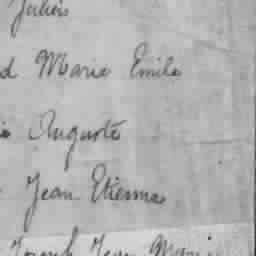 Julien
d Marie Emile
Auguste
Jean Etienne
Joseph Jean Marie